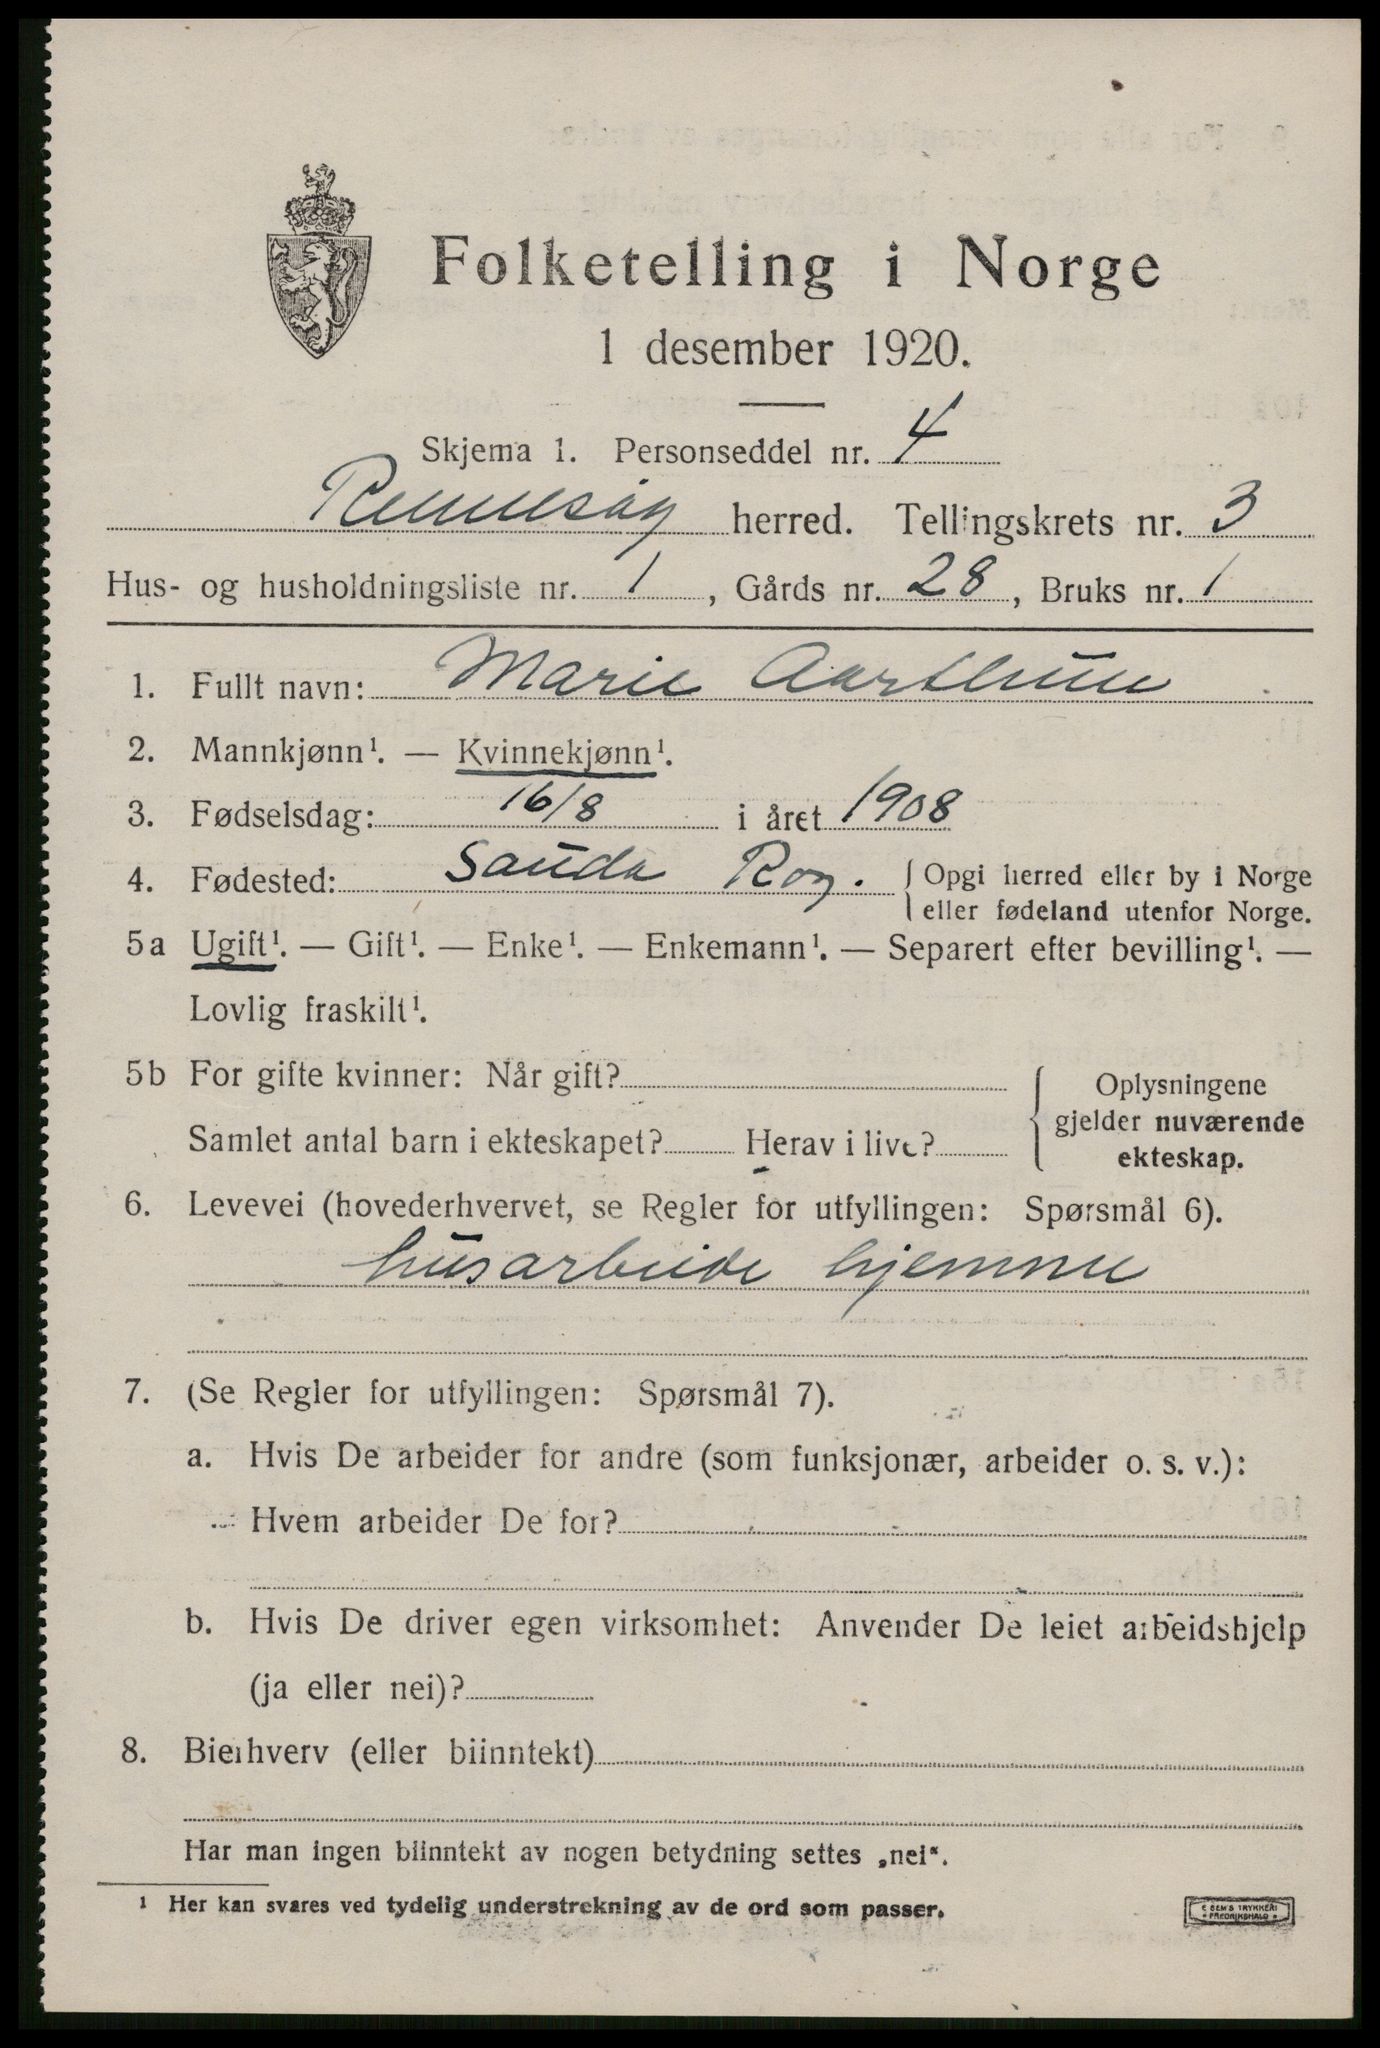 Folketelling i Norge
1 desember 1920.
Skjema 1. Personseddel nr. 4
Rennesøy herred. Tellingskrets nr. 3
Hus- og husholdningsliste nr. 1, Gårds nr. 28, Bruks nr. 1
1. Fullt navn: Marie Aarthun
2. Mannkjønn¹. — Kvinnekjønn¹.
3. Fødselsdag: 16/8 i året 1908
4. Fødested: Sauda Rog. { Opgi herred eller by i Norge
eller fødeland utenfor Norge.
5a Ugift¹. — Gift¹. — Enke¹. — Enkemann¹. — Separert efter bevilling¹. —
Lovlig fraskilt¹.
5b For gifte kvinner: Når gift?
Samlet antal barn i ekteskapet? Herav i live?
Oplysningene
gjelder nuværende
ekteskap.
6. Levevei (hovederhvervet, se Regler for utfyllingen: Spørsmål 6).
husarbeide hjemme
7. (Se Regler for utfyllingen: Spørsmål 7).
a. Hvis De arbeider for andre (som funksjonær, arbeider o. s. v.):
Hvem arbeider De for?
b. Hvis De driver egen virksomhet: Anvender De leiet arbeidshjelp
(ja eller nei)?
8. Bierhverv (eller biinntekt)
Har man ingen biinntekt av nogen betydning settes „nei“.
¹ Her kan svares ved tydelig understrekning av de ord som passer.
E SEM'S TRYKKERI
FREDRIKSHALD